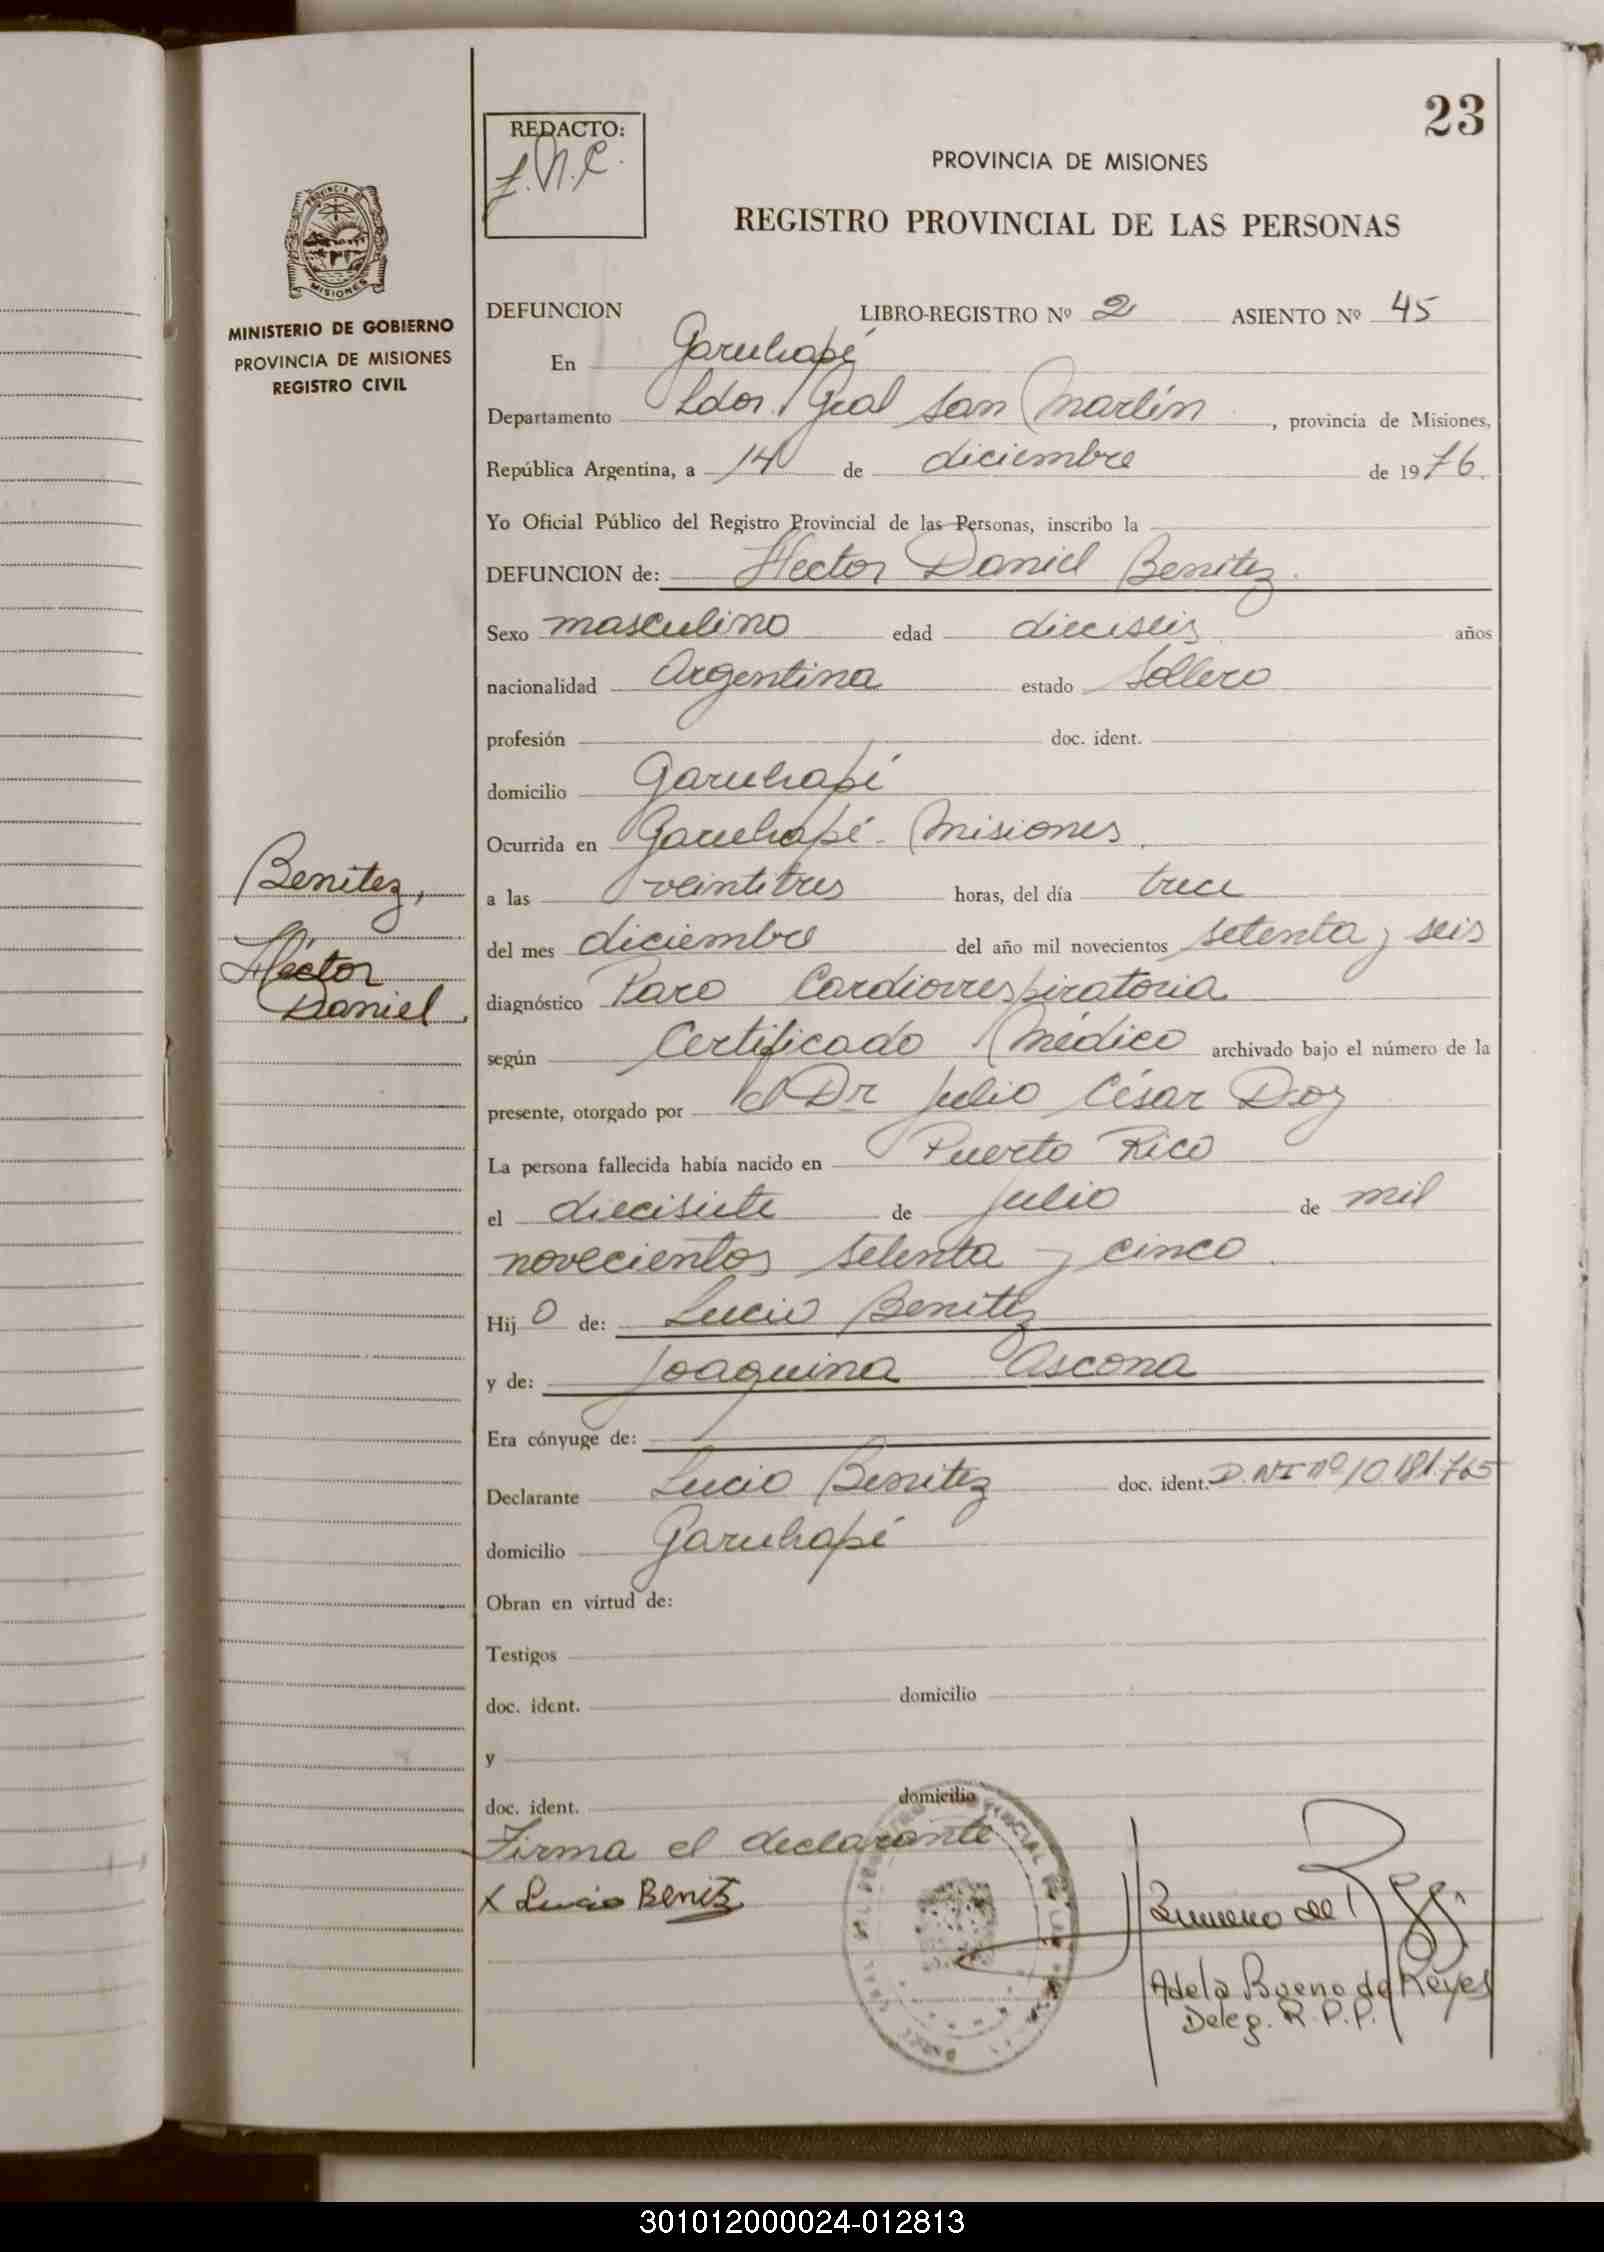 23
REDACTO:
PROVINCIA DE MISIONES
REGISTRO PROVINCIAL DE LAS PERSONAS
PROVINCIA DE
MISIONES
MINISTERIO DE GOBIERNO
PROVINCIA DE MISIONES
REGISTRO CIVIL
DEFUNCION LIBRO-REGISTRO Nº 2 ASIENTO Nº 45
En Garuhapé
Departamento Ldor. Gral San Martín, provincia de Misiones,
República Argentina, a 14 de diciembre de 1976.
Yo Oficial Público del Registro Provincial de las Personas, inscribo la
DEFUNCION de: Hector Daniel Benitez.
Sexo masculino edad dieciseis años
nacionalidad Argentina estado soltero
profesión doc. ident.
domicilio Garuhapé
Ocurrida en Garuhapé - Misiones.
a las veintitres horas, del día trece
del mes diciembre del año mil novecientos setenta y seis
diagnóstico Paro Cardiorrespiratoria
según Certificado Médico archivado bajo el número de la
presente, otorgado por el Dr Julio César Doz
La persona fallecida había nacido en Puerto Rico
el diecisiete de julio de mil
novecientos setenta y cinco.
Hijo de: Lucio Benitez
y de: Joaquina Ascona
Era cónyuge de:
Declarante Lucio Benitez doc. ident. D.N.I nº 10.181.765
domicilio Garuhapé
Obran en virtud de:
Testigos
doc. ident. domicilio
y
doc. ident. domicilio
Firma el declarante
x Lucio Benitz
Adela Bueno de Reyes
Deleg. R.P.P.
Benitez,
Héctor
Daniel.
301012000024-012813